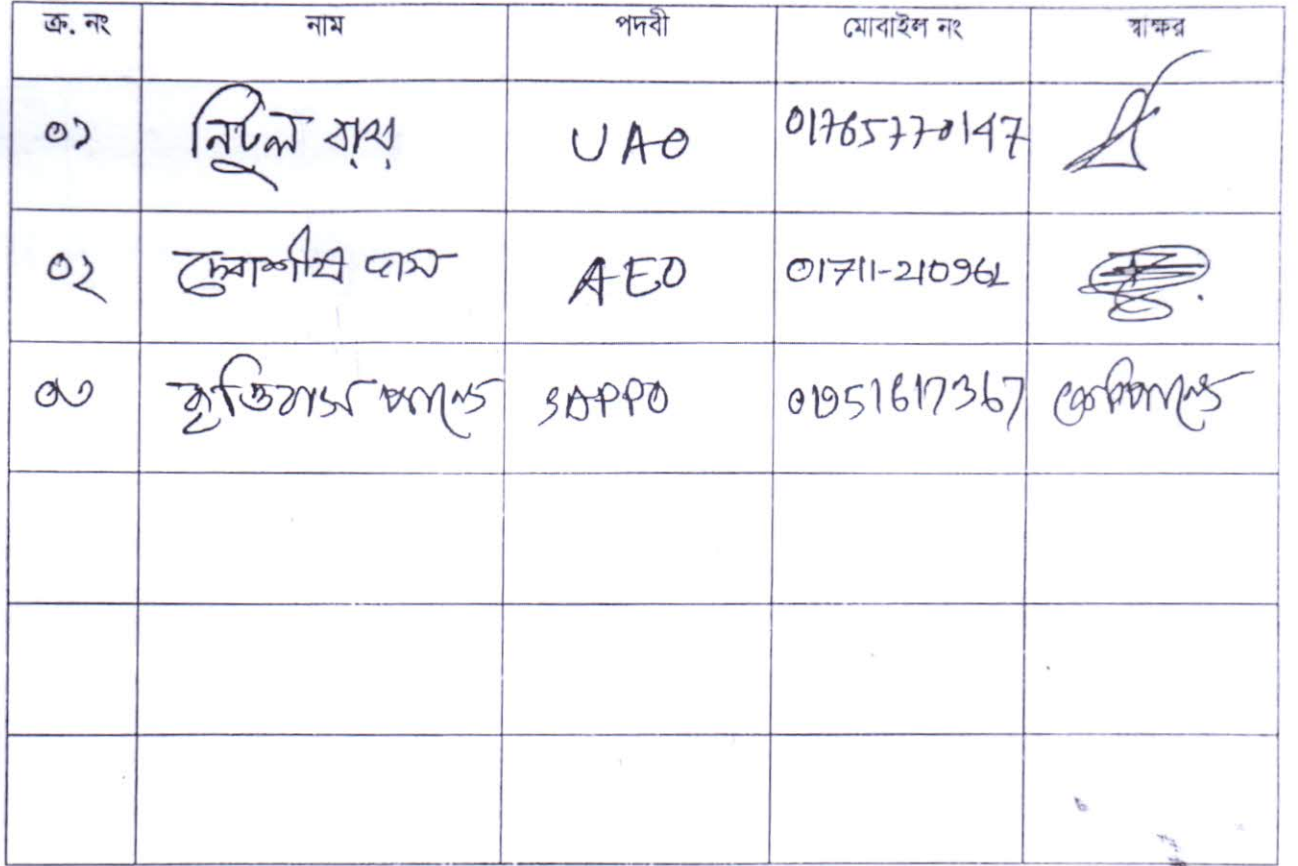 ক্র. নং নাম পদবী মোবাইল নং স্বাক্ষর
০১ নিটুল রায় UAO 01765770147
০২ দেবাশীষ দাস AEO 01711-210962
০৩ কৃত্তিবাস পান্ডে SAPPO 01951617367